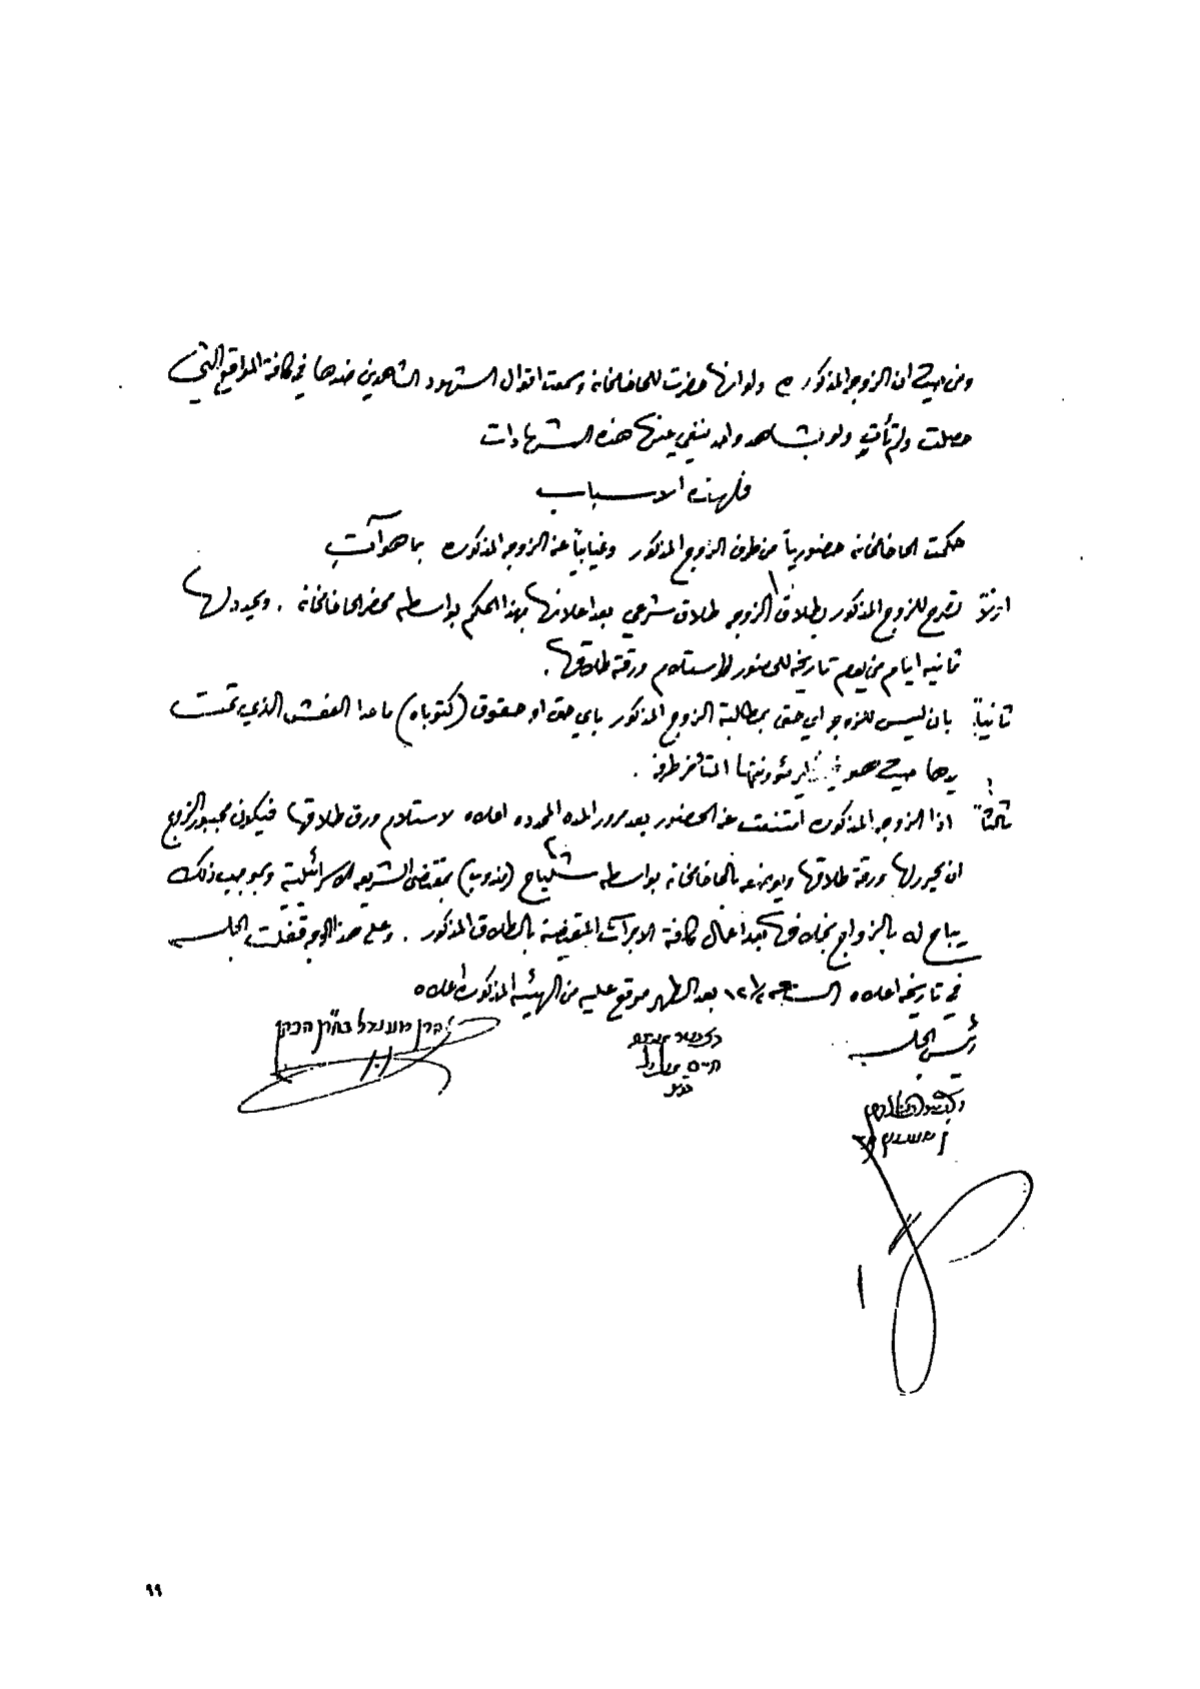 ومن حيث ان الزوجه المذكوره ولو انها حضرت للحاخامخانه وسمعت اقوال الشهود الشاهدين ضدها في كافة المواقع التي
حصلت ولم تأتِ ولو بشاهد واحد ينفي عنها هذه الشهادات
فلهذه الاسباب
حكمت الحاخامخانه حضورياً من طرف الزوج المذكور وغيابياً عن الزوجه المذكوره بما هو آت
اولاً تصرح للزوج المذكور بطلاق الزوجه طلاق شرعي بعد اعلانها بهذا الحكم بواسطه محضر الحاخامخانه . ويحدد لها
ثمانيه ايام من يوم تاريخه للحضور لاستلام ورقة طلاقها .
ثانياً بان ليس للزوجه اي حق بمطالبة الزوج المذكور باي حق او حقوق (كتوباه) ما عدا العفش الذي تحت
يدها حيث هو في نظير مؤونتها المتأخر طرفه .
ثالثاً اذا الزوجه المذكوره امتنعت عن الحضور بعد مرور المده المحدده اعلاه لاستلام ورق طلاقها فيكون مجبور الزوج
ان يحرر لها ورقة طلاقها ويودعه بالحاخامخانه بواسطه شلياح (مندوب) بمقتضى الشريعه الاسرائيلية وبموجب ذلك
يباح له بالزواج بخلافها بعد اعمال كافة الاجراآت المقتضية بالطلاق المذكور . وعلى هذا الوجه قفلت الجلسه
في تاريخه اعلاه الساعه ١٢ ١/٢ بعد الظهر موقع عليه من الهيئه المذكوره اعلاه
رئيس الجلسه
٩٩